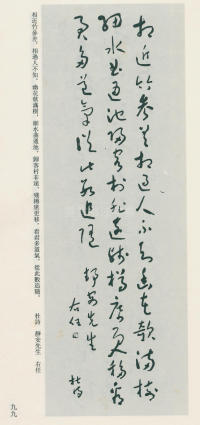 相近竹參差相過人不知幽花欹滿樹
細水曲通池歸客村非遠殘樽席更移看
君多道氣從此數追隨
靜安先生
右任
杜詩
相近竹參差,相過人不知。幽花欹滿樹,細水曲通池。歸客村非遠,殘樽席更移。看君多道氣,從此數追隨。
杜詩 靜安先生 右任
九九